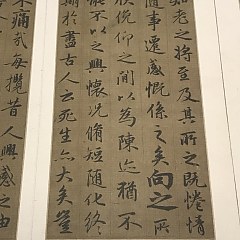 知老之將至及其所之既惓情
隨事遷感慨係之矣向之所
欣俛仰之間以為陳迹猶不
能不以之興懷況脩短隨化終
期於盡古人云死生亦大矣豈
不痛哉每攬昔人興感之由